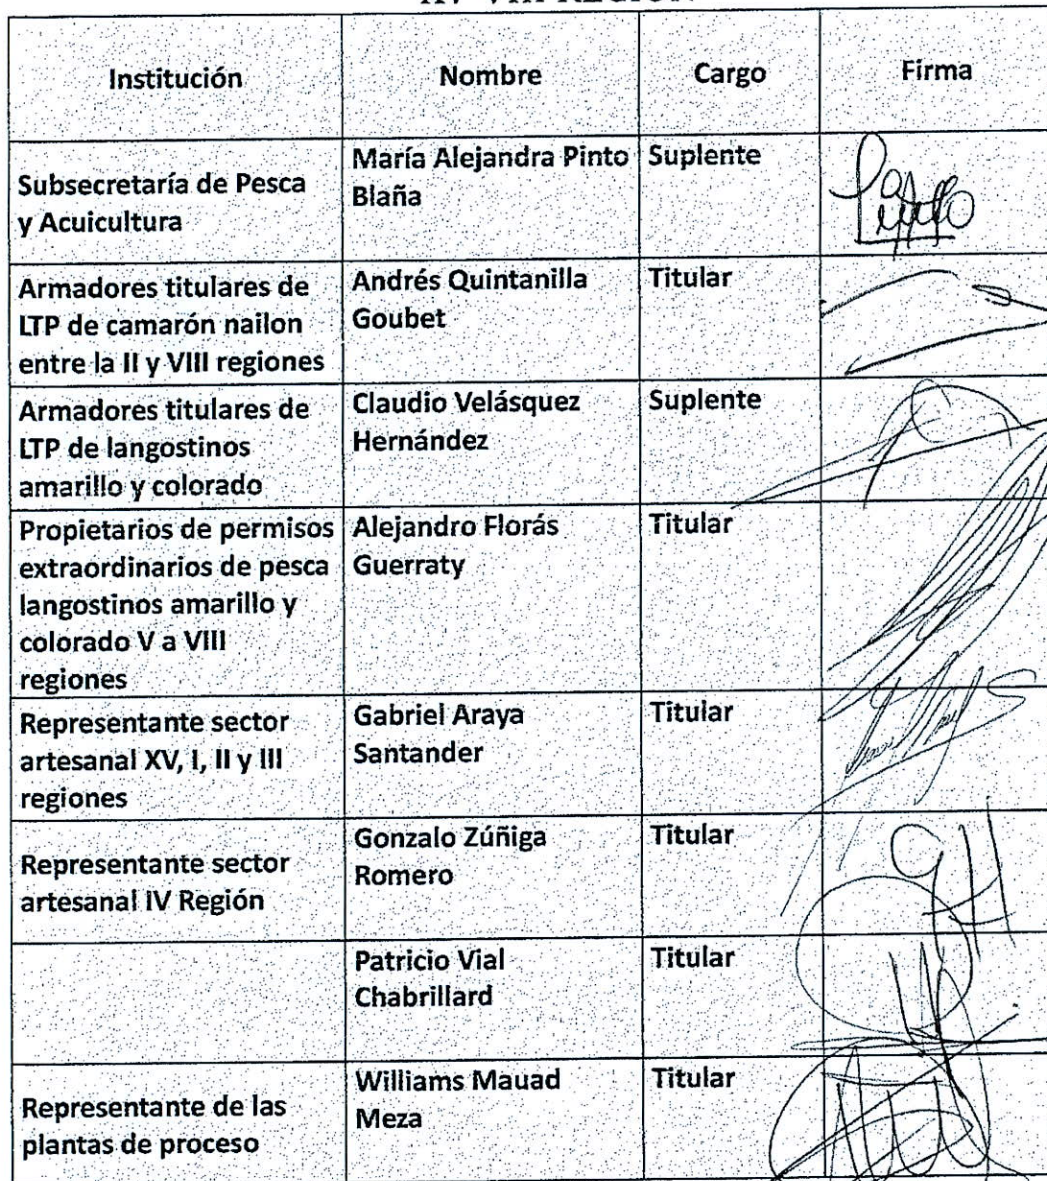 XV-VIII REGION
Institución Nombre Cargo Firma
Subsecretaría de Pesca
y Acuicultura
María Alejandra Pinto
Blaña
Suplente
Armadores titulares de
LTP de camarón nailon
entre la II y VIII regiones
Andrés Quintanilla
Goubet
Titular
Armadores titulares de
LTP de langostinos
amarillo y colorado
Claudio Velásquez
Hernández
Suplente
Propietarios de permisos
extraordinarios de pesca
langostinos amarillo y
colorado V a VIII
regiones
Alejandro Florás
Guerraty
Titular
Representante sector
artesanal XV, I, II y III
regiones
Gabriel Araya
Santander
Titular
Representante sector
artesanal IV Región
Gonzalo Zúñiga
Romero
Titular
Patricio Vial
Chabrillard
Titular
Representante de las
plantas de proceso
Williams Mauad
Meza
Titular